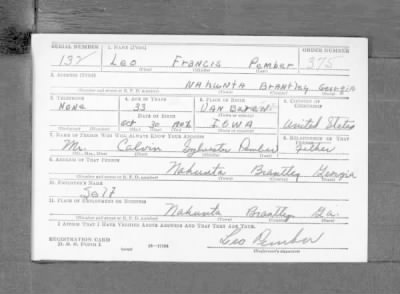 SERIAL NUMBER 1. NAME (Print) ORDER NUMBER
132 Leo Francis Pember 375
(First) (Middle) (Last)
2. ADDRESS (Print)
Nahunta Brantley Georgia
(Number and street or R. F. D. number) (Town) (County) (State)
3. TELEPHONE 4. AGE IN YEARS 5. PLACE OF BIRTH 6. COUNTRY OF CITIZENSHIP
None 33 Van Buren
DATE OF BIRTH (Town or county)
Oct 30 Iowa United States
(Mo.) (Day) (Yr.) (State or country)
7. NAME OF PERSON WHO WILL ALWAYS KNOW YOUR ADDRESS 8. RELATIONSHIP OF THAT PERSON
Mr. Calvin Sylvester Pember Father
(Mr., Mrs., Miss) (First) (Middle) (Last)
9. ADDRESS OF THAT PERSON
Nahunta Brantley Georgia
(Number and street or R. F. D. number) (Town) (County) (State)
10. EMPLOYER'S NAME
Self
11. PLACE OF EMPLOYMENT OR BUSINESS
Nahunta Brantley Ga.
(Number and street or R. F. D. number) (Town) (County) (State)
I AFFIRM THAT I HAVE VERIFIED ABOVE ANSWERS AND THAT THEY ARE TRUE.
REGISTRATION CARD Leo Pember
D. S. S. Form 1 (Registrant's signature)